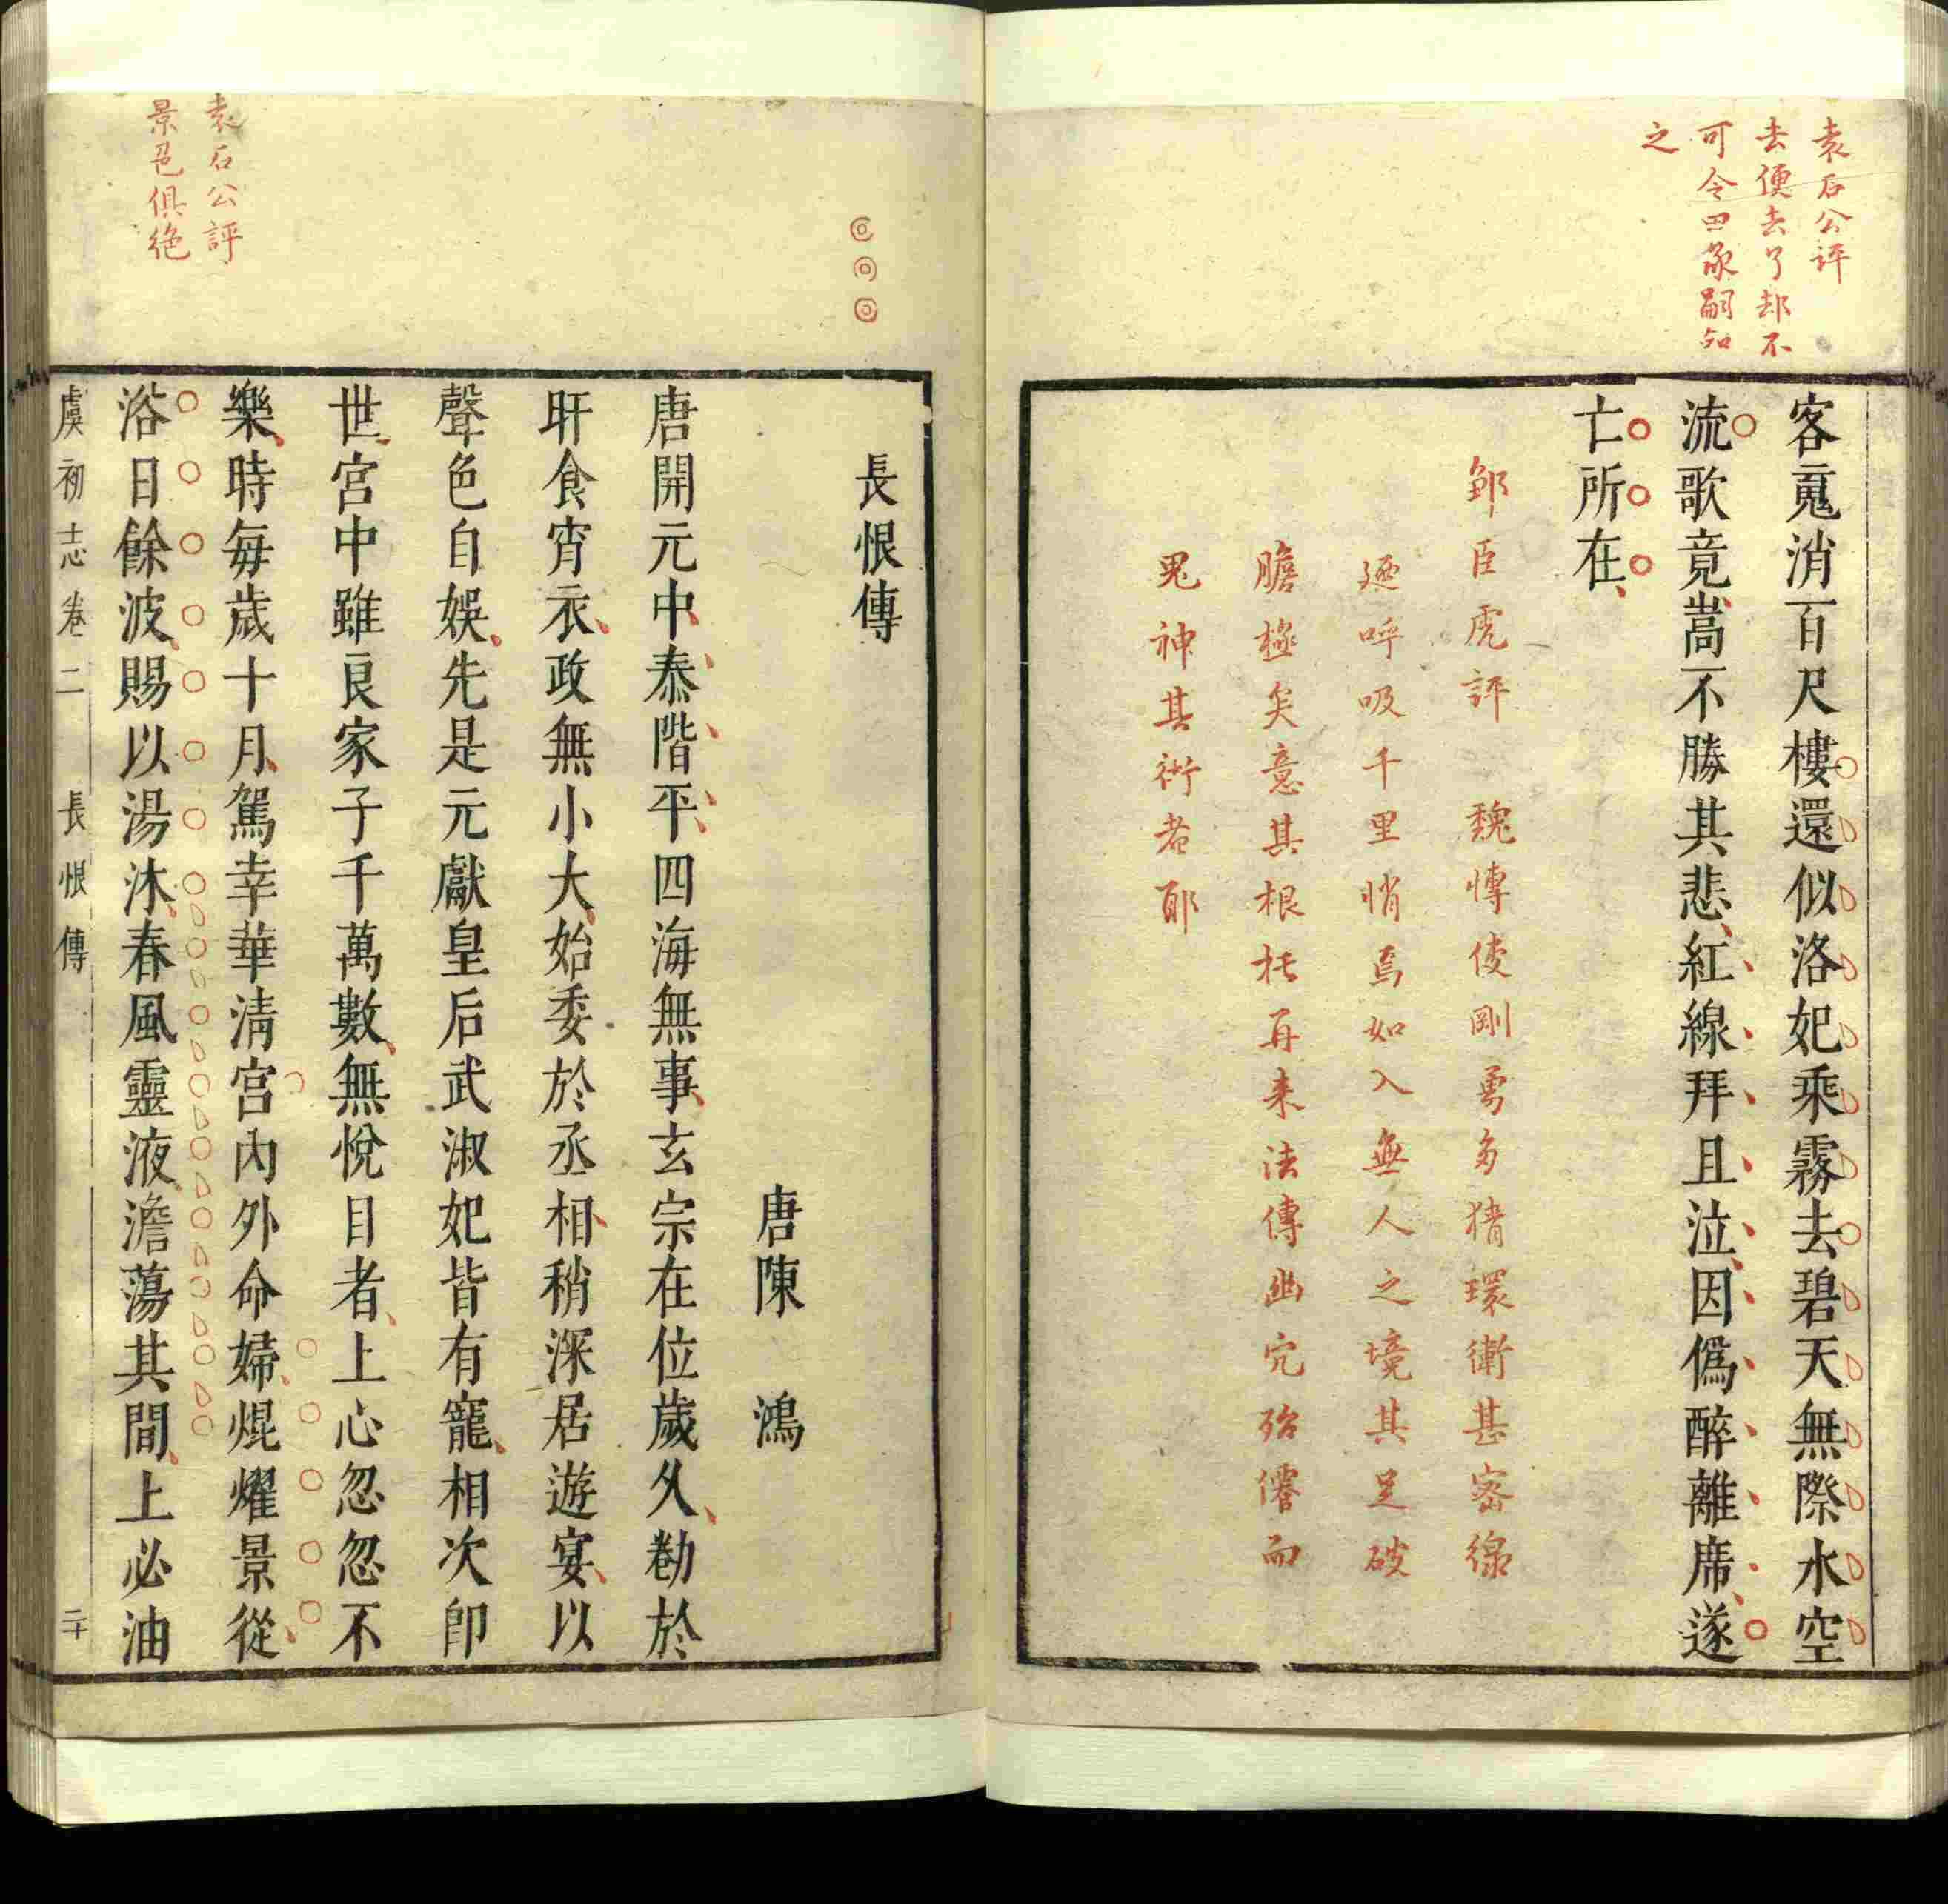 袁石公評
去便去了却不
可令田承嗣知
之
客䰟消百尺樓還似洛妃乘霧去碧天無際水空
流歌竟嵩不勝其悲紅線拜且泣因僞醉離席遂
亡所在
鄒臣虎評　魏愽倰剛勇多猜環衛甚密線
廼呼吸千里悄焉如入無人之境其足破
膽極矣意其根托再来法傳幽宂殆僊而
鬼神其術者耶
長恨傳
唐陳　鴻
唐開元中泰階平四海無事玄宗在位歲久勌於
旰食宵衣政無小大始委於丞相稍深居遊宴以
聲色自娛先是元獻皇后武淑妃皆有寵相次卽
世宮中雖良家子千萬數無悅目者上心忽忽不
樂時每歲十月駕幸華淸宮內外命婦焜燿景從
浴日餘波賜以湯沐春風靈液澹蕩其間上必油
袁石公評
景色俱絶
虞初志卷二　長恨傳　二十